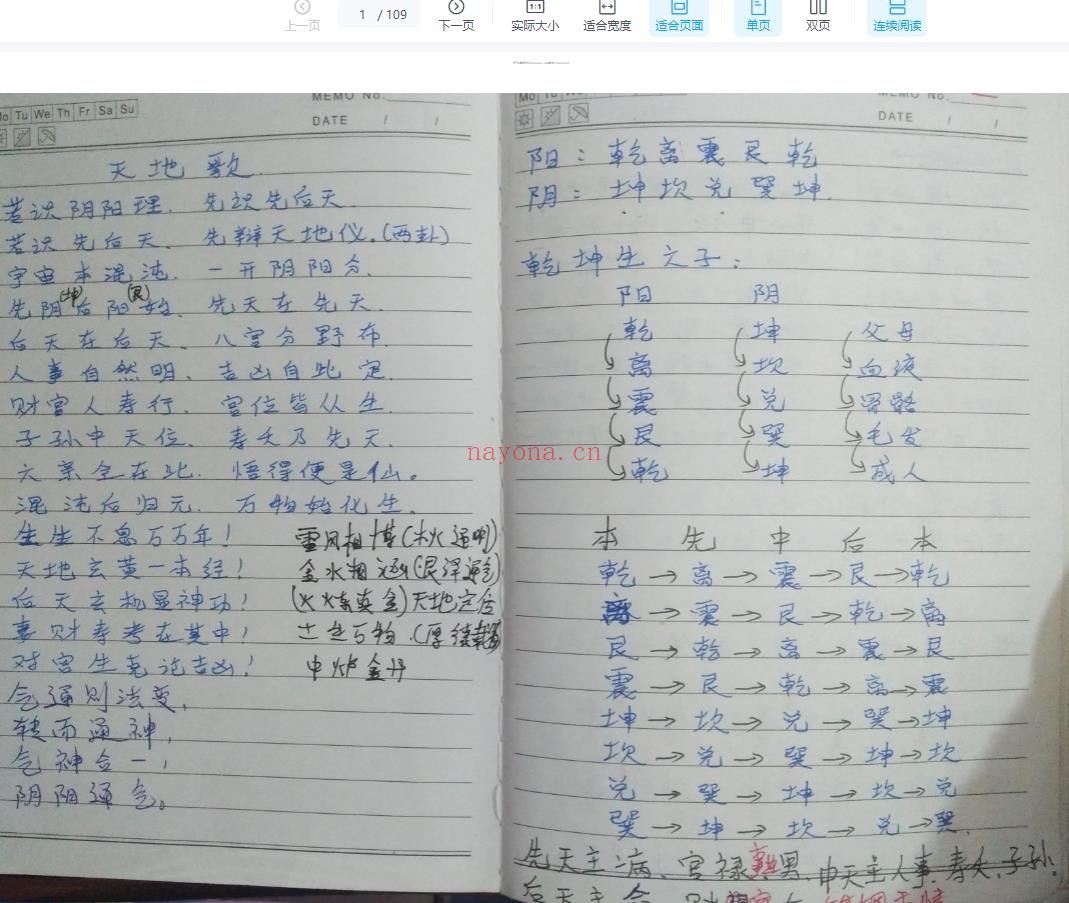 上一页 1 / 109 下一页 实际大小 适合宽度 适合页面 单页 双页 连续阅读
Mo Tu We Th Fr Sa Su
MEMO No.
DATE / /
天地歌
若识阴阳理. 先识先后天.
若识先后天. 先辩天地仪.(两卦)
宇宙本混沌. 一开阴阳分.
先阴(坤)后阳(艮)始. 先天在先天.
后天在后天. 八宫分野布.
人事自然明. 吉凶自此定.
财官人寿行. 宫位皆从生.
子孙中天位. 寿夭乃先天.
六亲全在此. 悟得便是仙。
混沌后归元. 万物始化生.
生生不息万万年! 雷风相博(木火通明)
天地玄黄一本经! 金水相涵(艮泽通气)
后天玄机显神功! (火炼真金)天地定位
事财寿考在其中! 土生万物.
对宫生克论吉凶! 中炉金丹
气通则法变,
转而通神,
气神合一,
阴阳通气。
Mo
MEMO No.
DATE / /
阳: 乾离震艮乾
阴: 坤坎兑巽坤.
乾坤生六子:
阳 阴
乾 坤 父母
离 坎 血液
震 兑 骨骼
艮 巽 毛发
乾 坤 成人
nayona.cn
本 先 中 后 本
乾→离→震→艮→乾
离→震→艮→乾→离
艮→乾→离→震→艮
震→艮→乾→离→震
坤→坎→兑→巽→坤
坎→兑→巽→坤→坎
兑→巽→坤→坎→兑
巽→坤→坎→兑→巽.
先天主病、官禄 男. 中天主人事.寿夭.子孙.
后天主